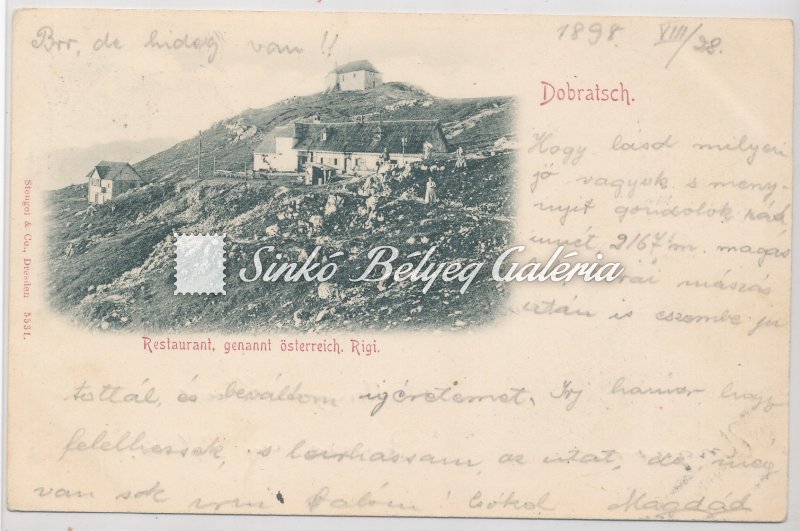 Brr, de hideg van!!
1898 VIII/28.
Dobratsch.
Hogy lásd milyen
jó vagyok s meny-
nyit gondolok rád
2167 m. magas
mászás
után is eszembe ju
tottál, és beváltom igéretemet. Irj hamar hogy
felelhessek, s leirhassam az utat, de még
van sok Csókol Magdád
Restaurant, genannt österreich. Rigi.
Stengel & Co., Dresden 5531.
Sinkó Bélyeg Galéria